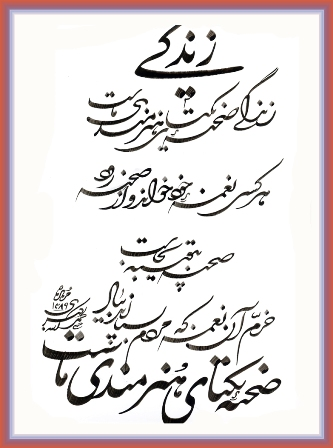 زندگی
زندگی صحنه یکتای هنرمندی ماست
هر کسی نغمه خود خواند و از صحنه رود
صحنه پیوسته بجاست
خرم آن نغمه که مردم بسپارند بیاد
صحنه یکتای هنرمندی ماست
۱۳۸۹